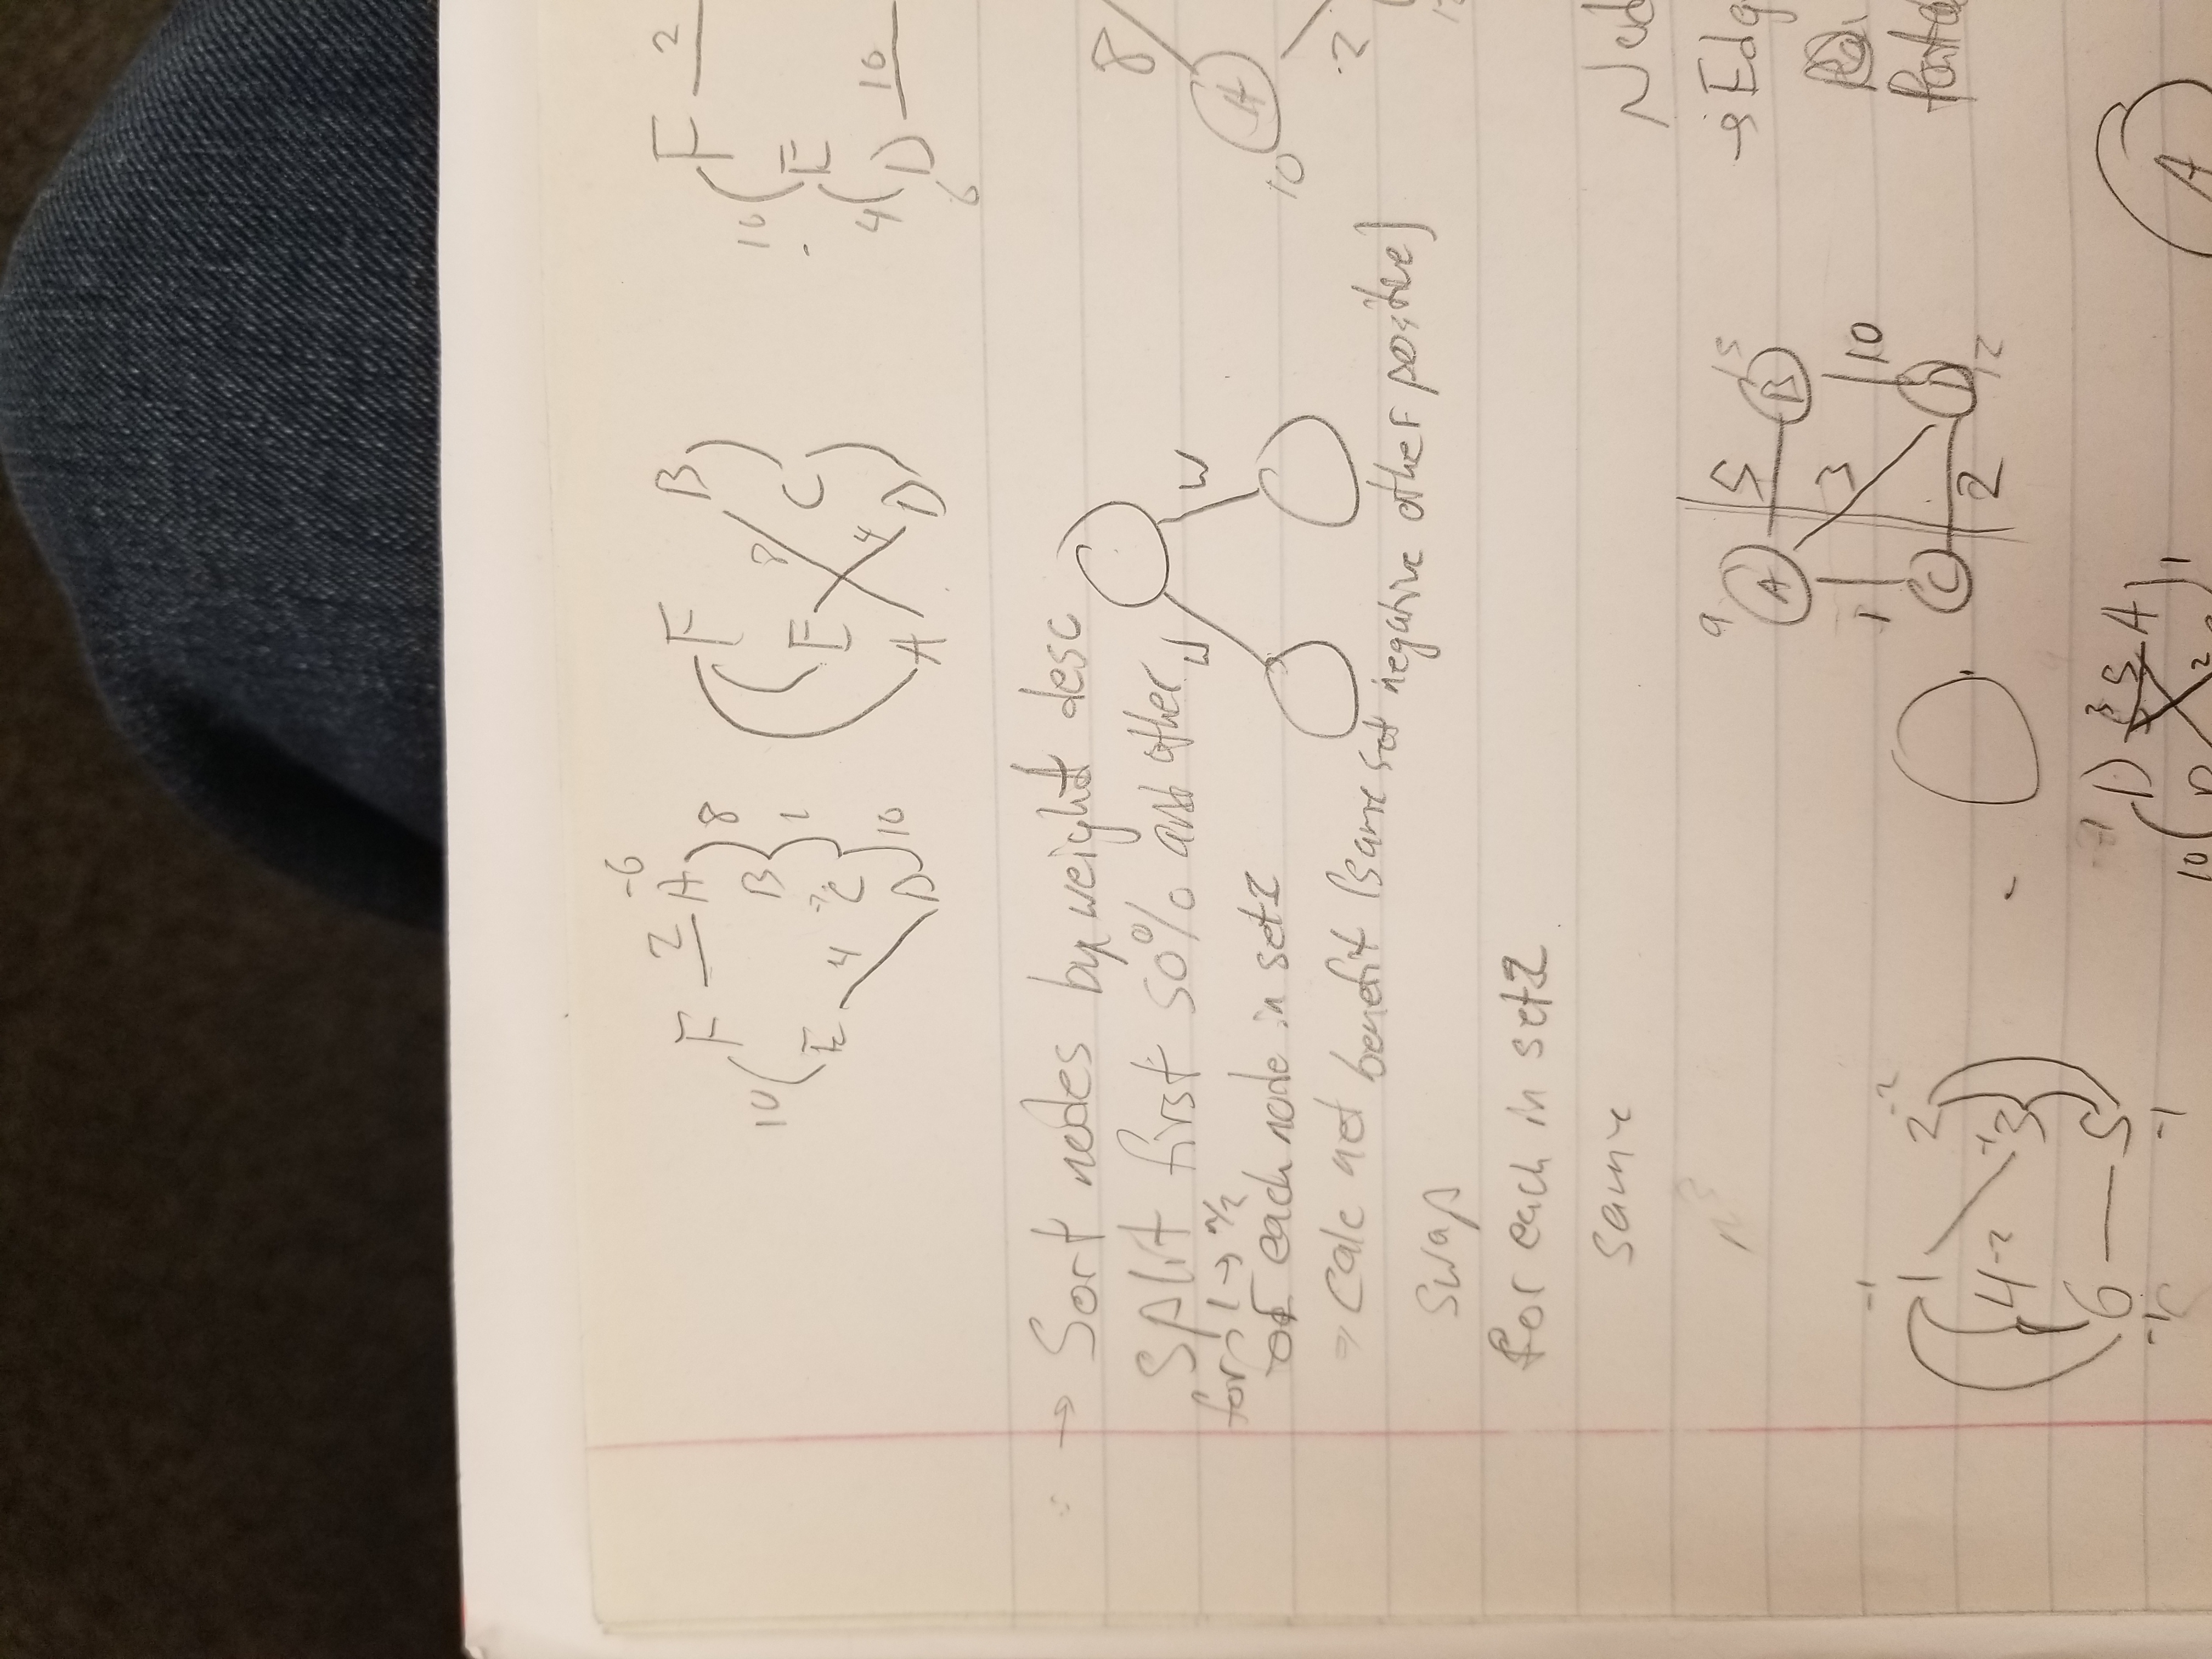 -6
F 2 A
8
10
B
1
E 4 C
D 10
F B
8
E C
4
A D
F 2
10
E
4
D 10
6
→ Sort nodes by weight desc
split first 50% and other
W W
for 1 → n/2
of each node in set1
⇒ calc net benefit (same set negative other positive)
swap
for each in set2
same
n³
8
A
10
2
9 5 15
A B
3
1 10
C D
2 12
-1 -2
1 2
4 -2 -1 3
6 5
-1 -1
D 3 5 A
10 2 1
A